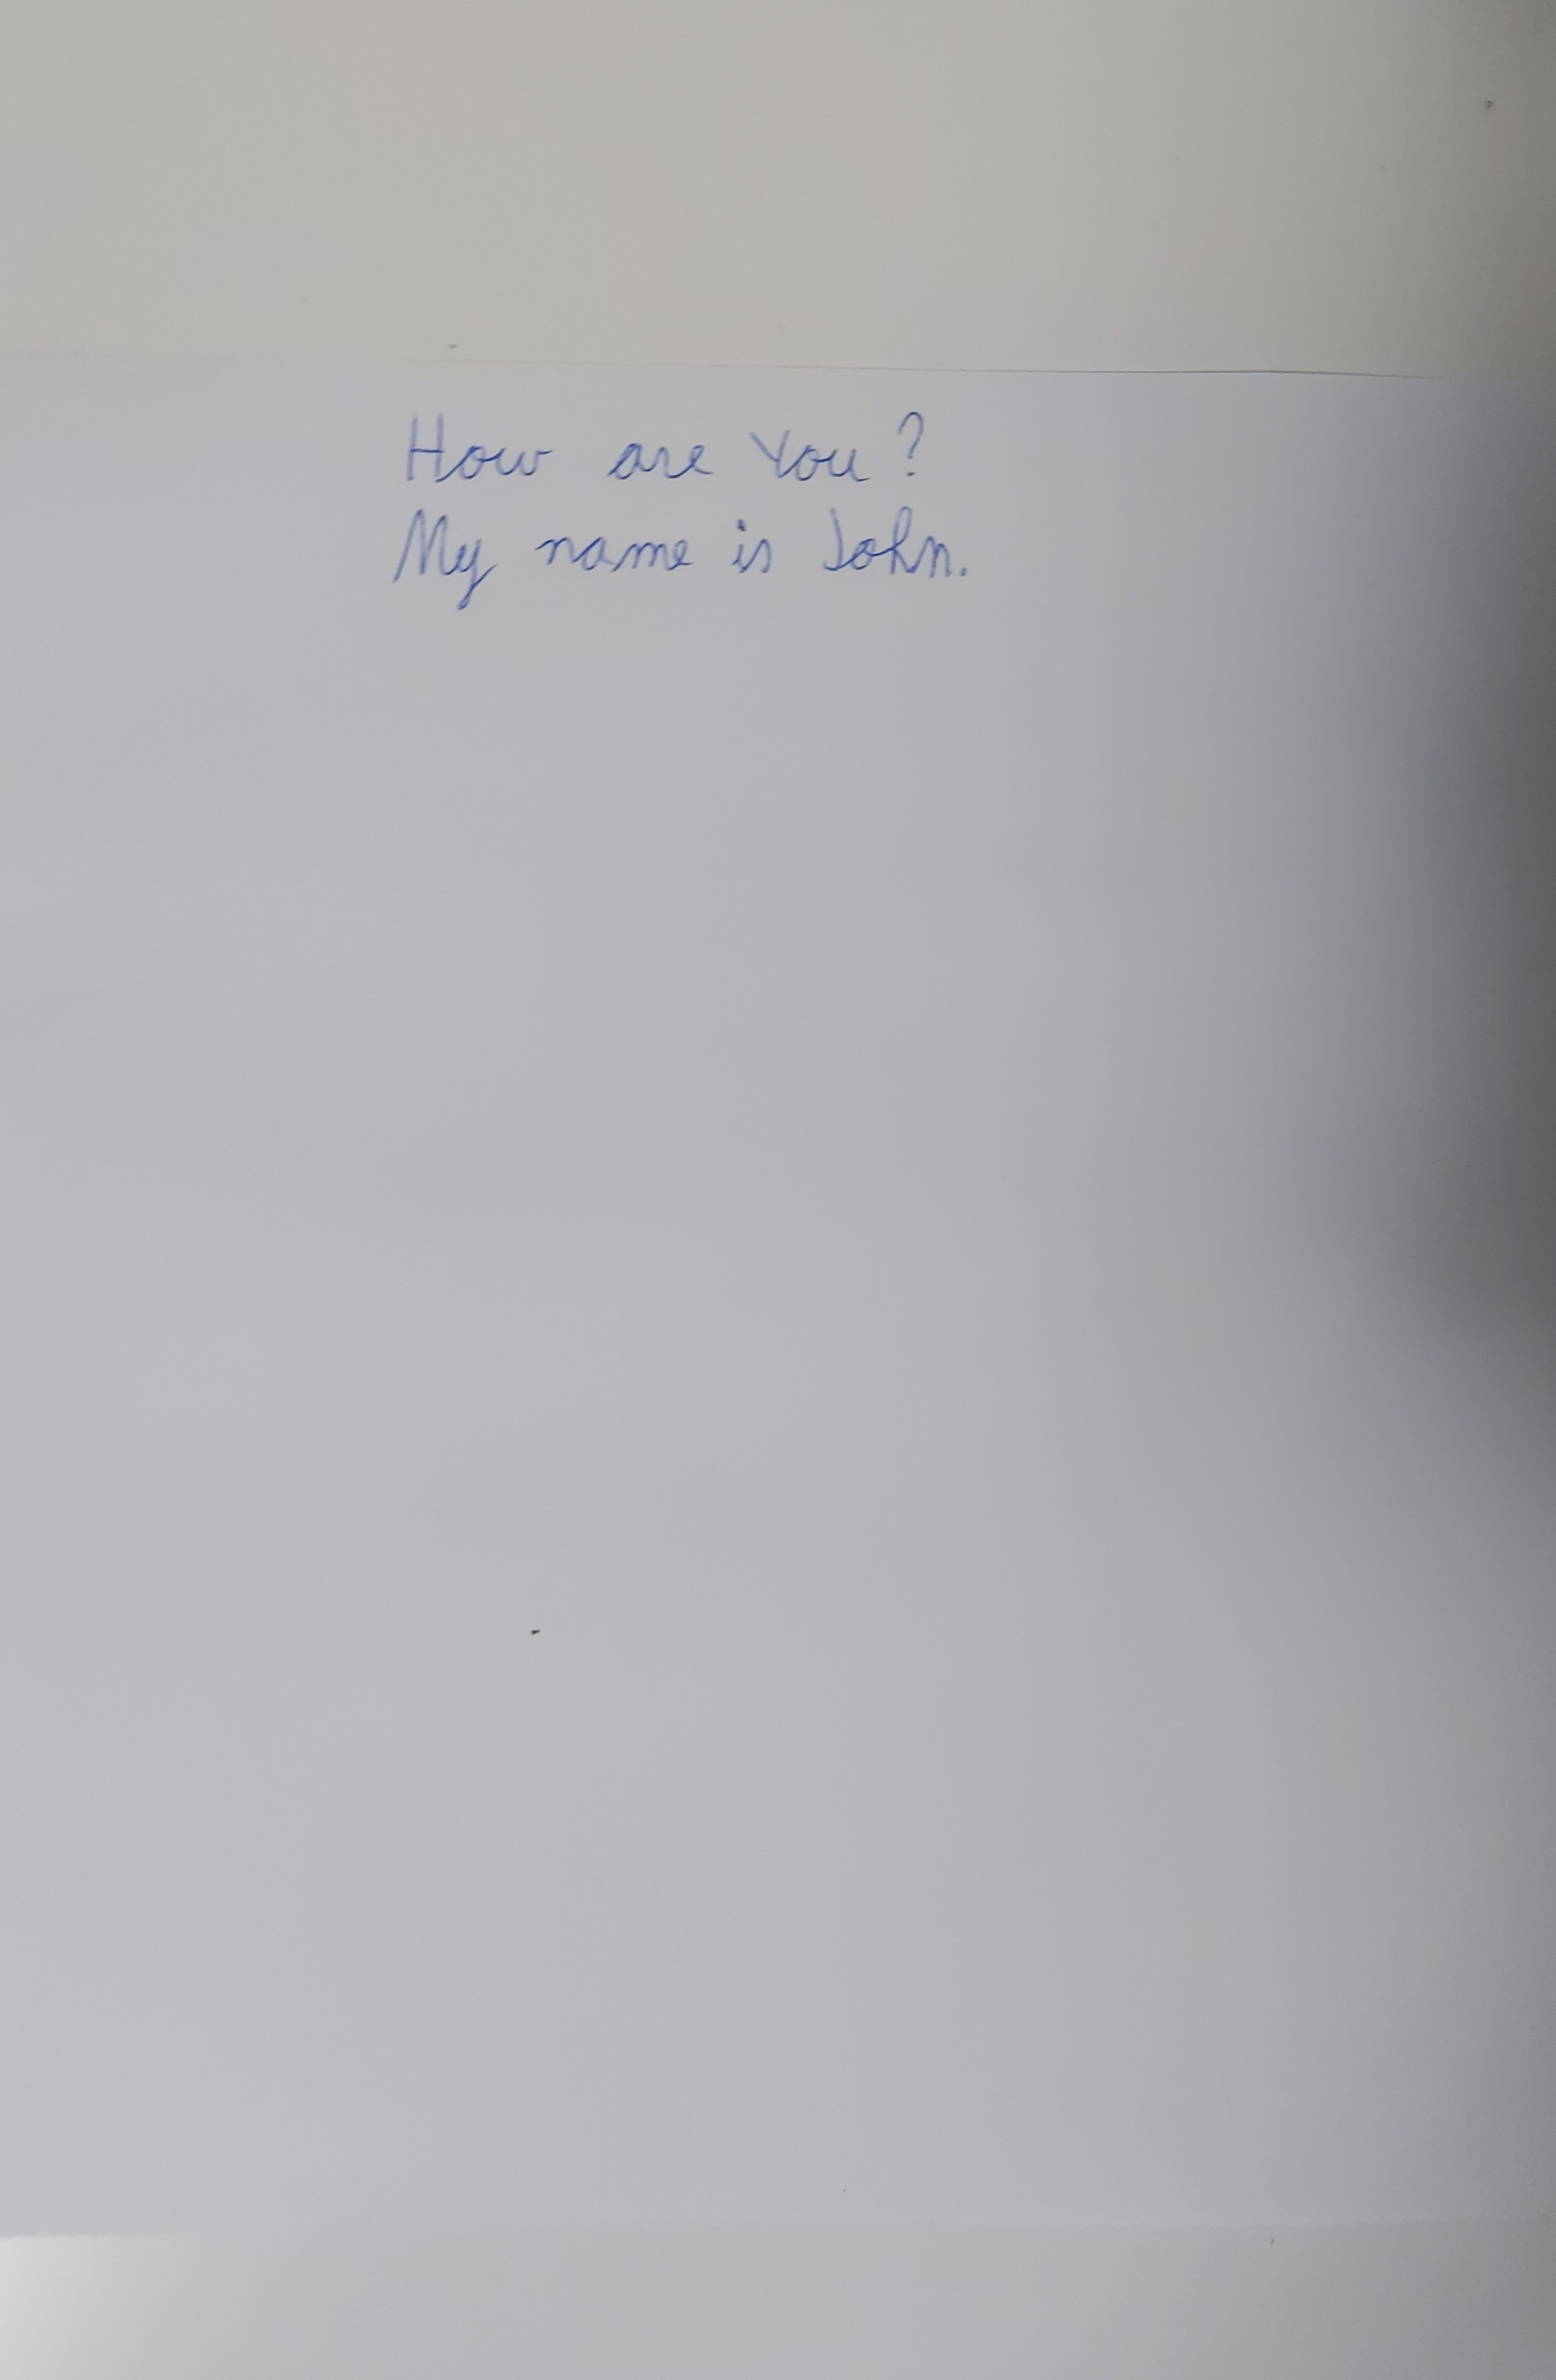 How are You?
My name is John.